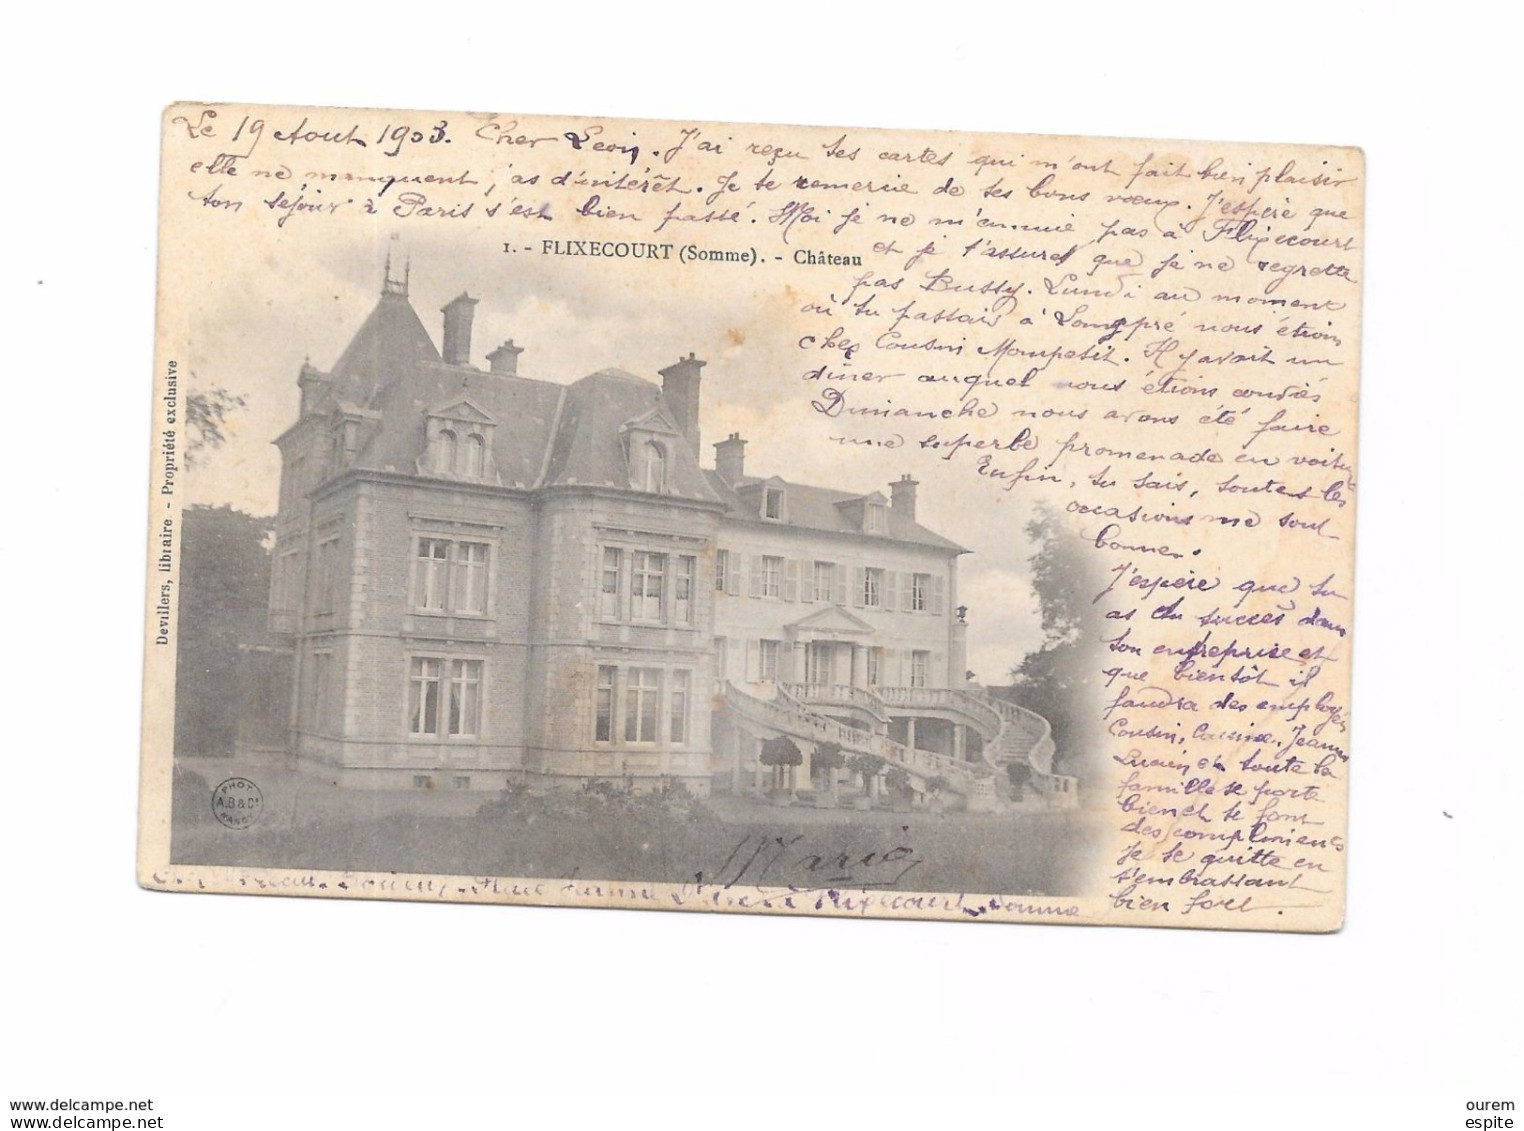 Le 19 Aout 1903. Cher Léon. J'ai reçu tes cartes qui m'ont fait bien plaisir
elle ne manquent pas d'intérêt. Je te remercie de tes bons vœux. J'espère que
ton séjour à Paris s'est bien passé. Moi je ne m'ennuie pas à Flixecourt
1. - FLIXECOURT (Somme). - Château
et je t'assure que je ne regrette
pas Bussy. Lundi au moment
où tu passais à Longpré nous étions
chez Cousin Mompetit. Il y avait un
diner auquel nous étions conviés
Dimanche nous avons été faire
une superbe promenade en voiture
Enfin, tu sais, toutes les
occasions me sont
bonnes.
J'espère que tu
as du succès dans
ton entreprise et
que bientôt il
faudra des employés
Cousin, Cousine, Jeanne
Lucien et toute la
famille se porte
bien et te font
des compliments
Je te quitte en
t'embrassant
bien fort.
Marie
à Flixecourt, Somme
Devillers, libraire - Propriété exclusive
PHOT
A.B & Cie
NANCY
www.delcampe.net
ourem
espite